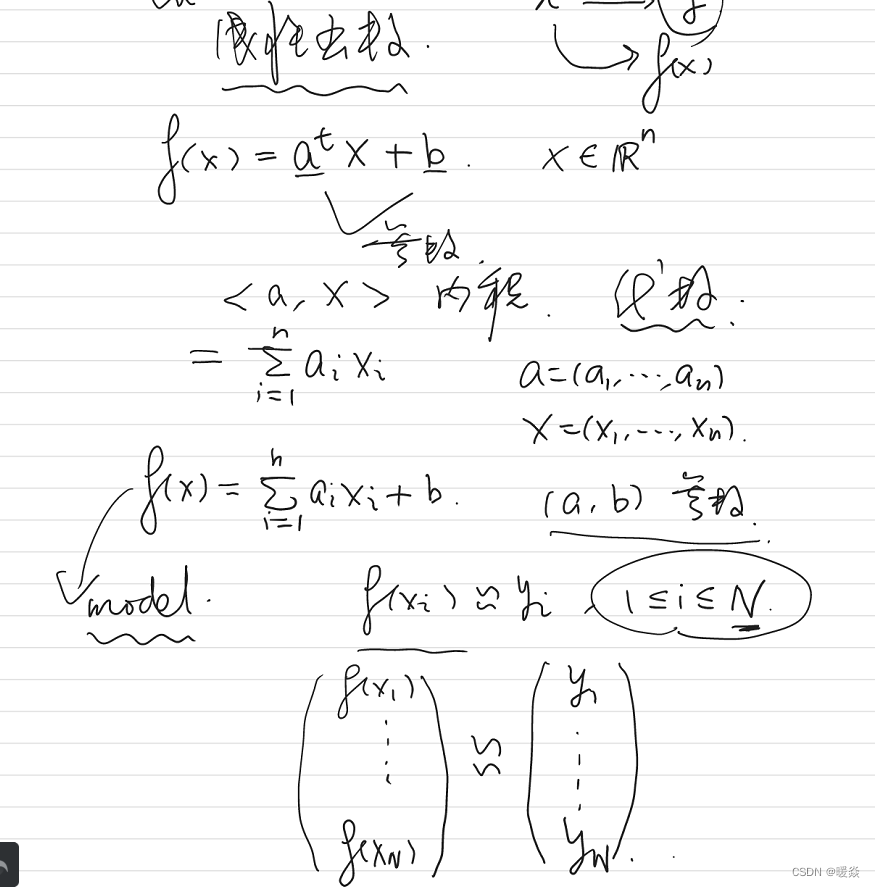 f(x)
线性函数.
f(x) = aᵗx + b . x ∈ ℝⁿ
参数.
<a, x> 内积.
= ∑ᵢ₌₁ⁿ aᵢxᵢ a=(a₁,⋯,aₙ)
x=(x₁,⋯,xₙ).
f(x) = ∑ᵢ₌₁ⁿ aᵢxᵢ + b . (a, b) 参数.
model.
f(xᵢ) ≈ yᵢ , 1 ≤ i ≤ N.
( f(x₁) ) ≈ ( y₁ )
⋮ ⋮
( f(x_N) ) ( y_N ) .
CSDN @暖焱